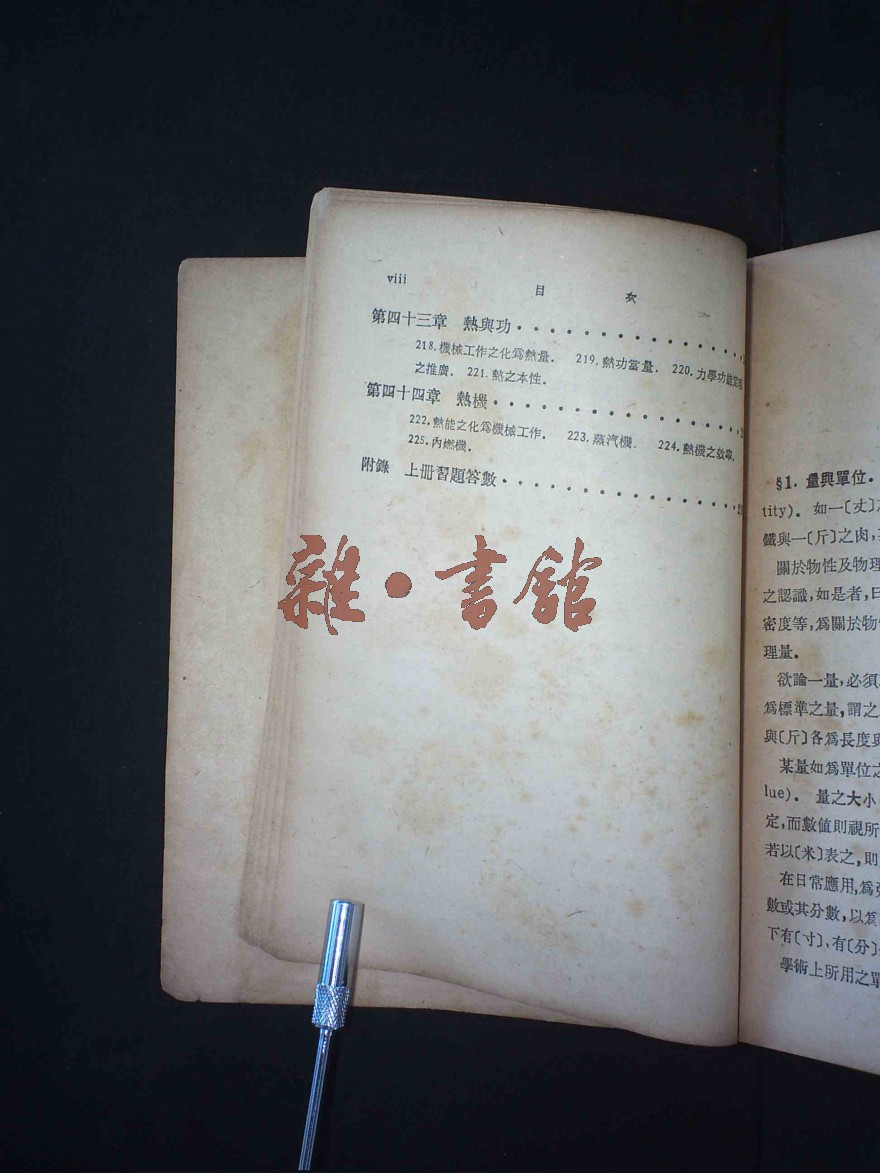 viii
目 次
第四十三章 熱與功
218.機械工作之化爲熱量. 219.熱功當量. 220.力學功能
之推廣. 221.熱之本性.
第四十四章 熱機
222.熱能之化爲機械工作. 223.蒸汽機. 224.熱機之效率.
225.內燃機.
附錄 上册習題答數
雜·書館
§1. 量與單位.
tity)。 如一〔丈〕
鐵與一〔斤〕之肉,
關於物性及物理
之認識,如是者,曰
密度等,爲關於物
理量。
欲論一量,必須
爲標準之量,謂之
與〔斤〕各爲長度與
某量如爲單位之
lue)。 量之大小
定,而數值則視所
若以〔米〕表之,則
在日常應用,爲
數或其分數,以爲
下有〔寸〕、有〔分〕
學術上所用之單